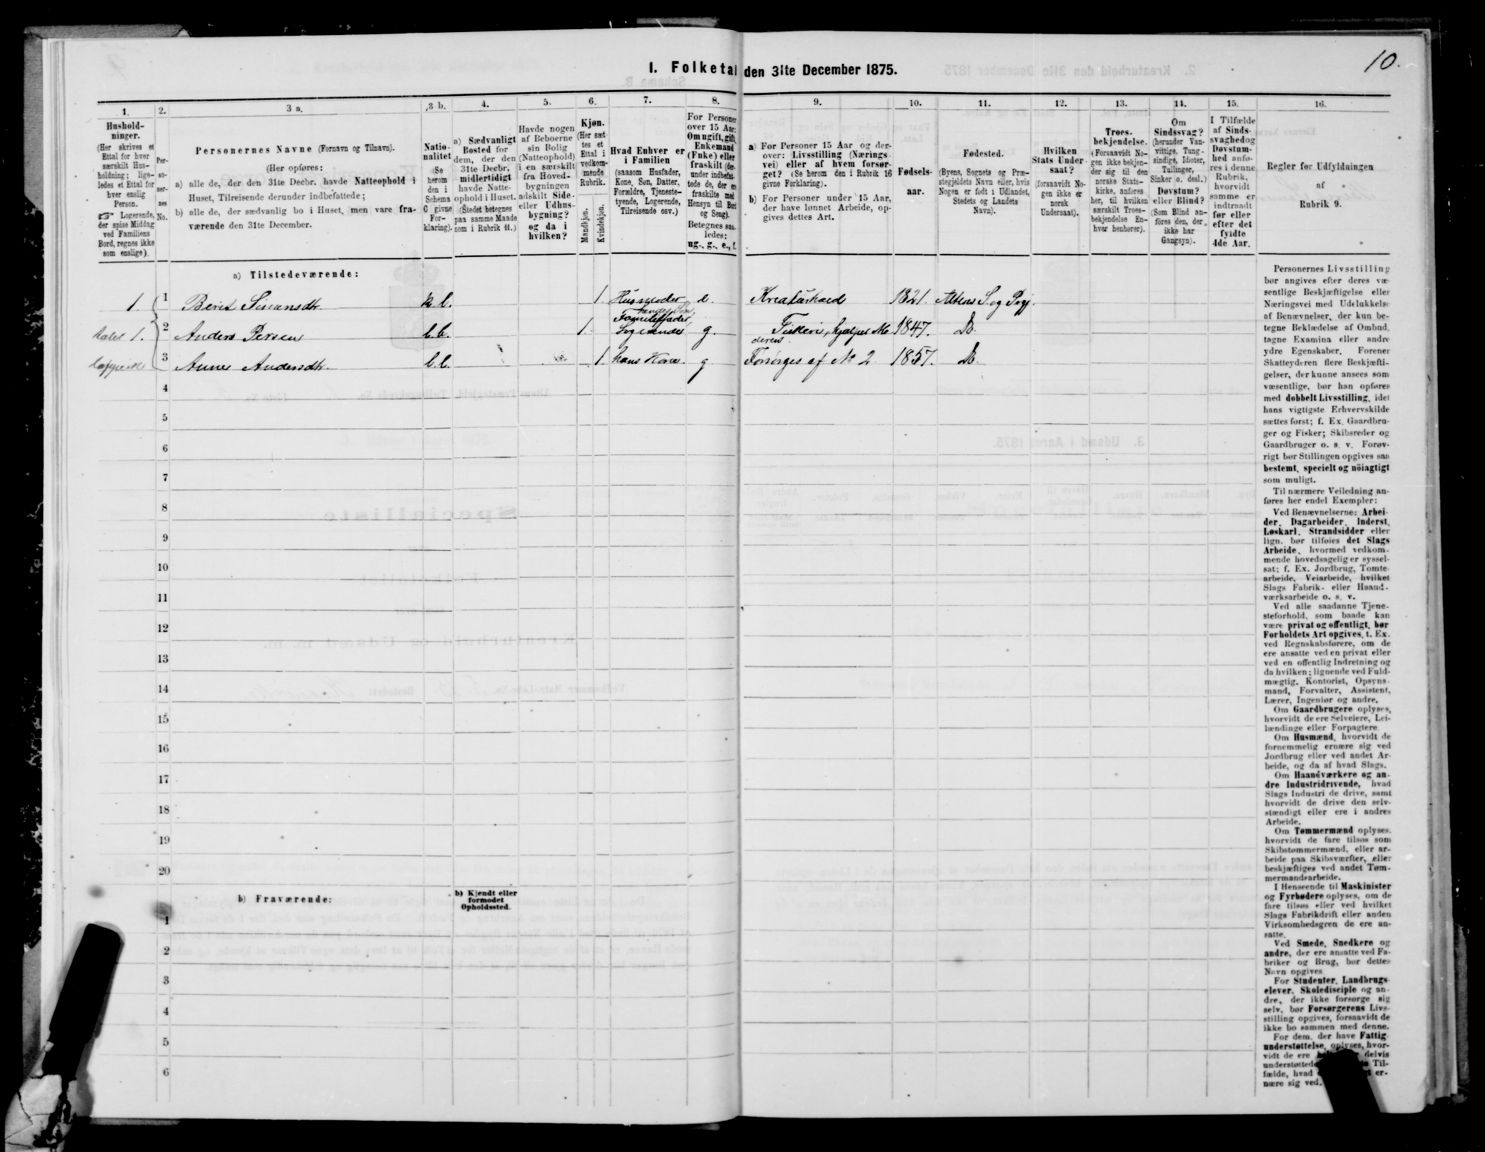 10.
I. Folketal den 31te December 1875.
1.
Hushold-
ninger.
(Her skrives et
Ettal for hver
særskilt Hus-
holdning; lige-
ledes et Ettal for
hver enslig
Person.
☞ Logerende,
der spise Middag
ved Familiens
Bord, regnes ikke
som enslige).
2.
Per-
so-
ner-
nes
No.
3 a.
Personernes Navne (Fornavn og Tilnavn).
(Her opføres:
a) alle de, der den 31te Decbr. havde Natteophold i
Huset, Tilreisende derunder indbefattede;
b) alle de, der sædvanlig bo i Huset, men vare fra-
værende den 31te December.
3 b.
Natio-
nalitet
(Se
herom
den i
Schema
C givne
For-
klaring).
4.
a) Sædvanligt
Bosted for
dem, der den
31te Decbr.
midlertidigt
havde Natte-
ophold i Huset.
(Stedet betegnes
paa samme Maade
som i Rubrik 11.)
5.
Havde nogen
af Beboerne
sin Bolig
(Natteophold)
i en særskilt
fra Hoved-
bygningen
adskilt Side-
eller Udhus-
bygning?
og da i
hvilken?
6.
Kjøn.
(Her sæt-
tes et
Ettal i
vedkom-
mende
Rubrik.
Mandkjøn.
Kvindekjøn.
7.
Hvad Enhver er
i Familien
(saasom Husfader,
Kone, Søn, Datter,
Forældre, Tjeneste-
tyende, Logerende,
Tilreisende osv.)
8.
For Personer
over 15 Aar:
Om ugift, gift,
Enkemand
(Enke) eller
fraskilt
Betegnes saa-
ledes:
ug., g., e., f.
9.
a) For Personer 15 Aar og der-
over: Livsstilling (Nærings-
vei) eller af hvem forsør-
get? (Se herom den i Rubrik 16
givne Forklaring).
b) For Personer under 15 Aar,
der have lønnet Arbeide, op-
gives dettes Art.
10.
Fødsels-
aar.
11.
Fødested.
(Byens, Sognets og Præ-
stegjeldets Navn eller, hvis
Nogen er født i Udlandet,
Stedets og Landets
Navn).
12.
Hvilken
Stats Under-
saat?
(forsaavidt No-
gen ikke er
norsk
Undersaat).
13.
Troes-
bekjendelse.
(Forsaavidt No-
gen ikke bekjen-
der sig til den
norske Stats-
kirke, anføres
her, til hvilken
særskilt Troes-
bekjendelse En-
hver henhører).
14.
Om
Sindssvag?
(herunder Van-
vittige, Tung-
sindige, Idioter,
Tullinger,
Sinker o. desl.)
Døvstum?
eller Blind?
(Som Blind an-
føres den, der
ikke har
Gangsyn).
15.
I Tilfælde
af Sinds-
svaghed og
Døvstum-
hed anfø-
res i denne
Rubrik,
hvorvidt
samme er
indtraadt
før eller
efter det
fyldte
4de Aar.
16.
Regler før Udfyldningen
af
Rubrik 9.
a) Tilstedeværende:
1. 1 k. l. 1. e. 1821.
2 Anders l. l. 1. g. 1847. D.
3 Anne Andersdt. l. l. 1. hans Kone. g Forsørges af No 2 1857. D.
4
5
6
7
8
9
10
11
12
13
14
15
16
17
18
19
20
b) Fraværende:
b) Kjendt eller
formodet
Opholdssted.
1
2
3
4
5
6
Personernes Livsstilling
bør angives efter deres væ-
sentlige Beskjæftigelse eller
Næringsvei med Udelukkelse
af Benævnelser, der kun be-
tegne Beklædelse af Ombud,
tagne Examina eller andre
ydre Egenskaber. Forener
Skatteyderen flere Beskjæfti-
gelser, der kunne ansees som
væsentlige, bør han opføres
med dobbelt Livsstilling, idet
hans vigtigste Erhvervskilde
sættes først; f. Ex. Gaardbru-
ger og Fisker; Skibsreder og
Gaardbruger o. s. v. Forøv-
rigt bør Stillingen opgives saa
bestemt, specielt og nöiagtigt
som muligt.
Til nærmere Veiledning an-
føres her endel Exempler:
Ved Benævnelserne: Arbei-
der, Dagarbeider, Inderst,
Løskarl, Strandsidder eller
lign. bør tilføies det Slags
Arbeide, hvormed vedkom-
mende hovedsagelig er syssel-
sat; f. Ex. Jordbrug, Tomte-
arbeide, Veiarbeide, hvilket
Slags Fabrik- eller Haand-
værksarbeide o. s. v.
Ved alle saadanne Tjene-
steforhold, som baade kan
være privat og offentligt, bør
Forholdets Art opgives, t. Ex.
ved Regnskabsførere, om de
ere ansatte ved en privat eller
ved en offentlig Indretning og
da hvilken; lignende ved Fuld-
mægtig, Kontorist, Opsyns-
mand, Forvalter, Assistent,
Lærer, Ingeniør og andre.
Om Gaardbrugere oplyses,
hvorvidt de ere Selveiere, Lei-
lændinge eller Forpagtere.
Om Husmænd, hvorvidt de
fornemmelig ernære sig ved
Jordbrug eller ved andet Ar-
beide, og da af hvad Slags.
Om Haandværkere og an-
dre Industridrivende, hvad
Slags Industri de drive, samt
hvorvidt de drive den selv-
stændigt eller ere i andres
Arbeide.
Om Tømmermænd oplyses,
hvorvidt de fare tilsøs som
Skibstømmermænd, eller ar-
beide paa Skibsværfter, eller
beskjæftiges ved andet Tøm-
mermandsarbeide.
I Henseende til Maskinister
og Fyrbødere oplyses, om de
fare tilsøs eller ved hvilket
Slags Fabrikdrift eller anden
Virksomhedsgren de ere an-
satte.
Ved Smede, Snedkere og
andre, der ere ansatte ved Fa-
briker og Brug, bør dettes
Navn opgives
For Studenter, Landbrugs-
elever, Skoledisciple og an-
dre, der ikke forsørge sig
selv, bør Forsørgerens Livs-
stilling opgives, forsaavidt de
ikke bo sammen med denne.
For dem, der have Fattig-
understøttelse, oplyses, hvor-
vidt de ere delvis
understøttede Til-
fælde, hvad er-
nære sig ved.